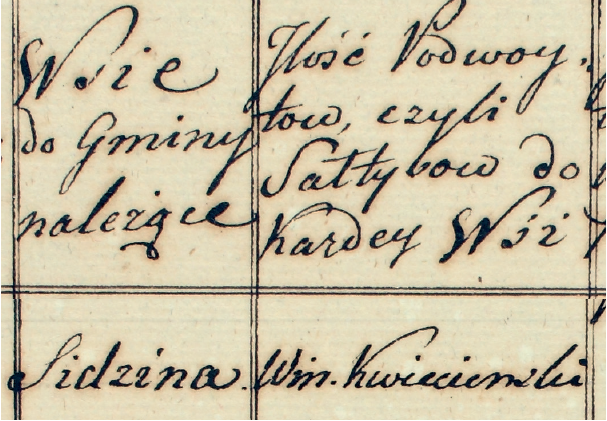 Wsie
do Gminy
należące
Jlość Podwoy-
tow, czyli
Sałtysow do
każdey Wsi
Sidzina.
Win. Kwiecienski